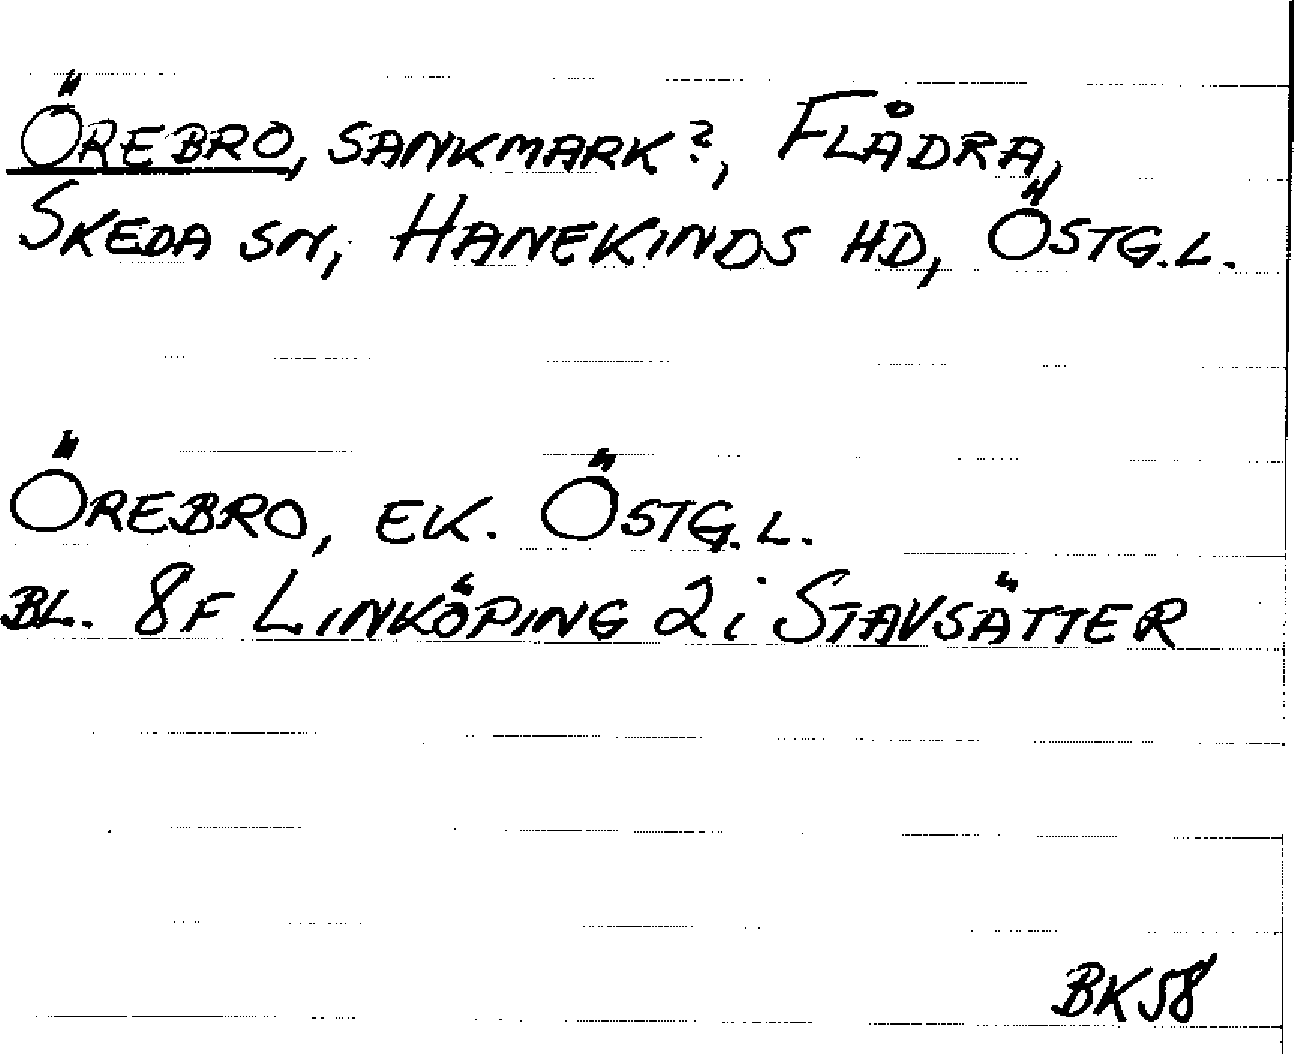 ÖREBRO, SANKMARK?, FLÅDRA,
SKEDA SN, HANEKINDS HD, ÖSTG.L.
ÖREBRO, EK. ÖSTG.L.
BL. 8F LINKÖPING 2i STAVSÄTTER
BK58